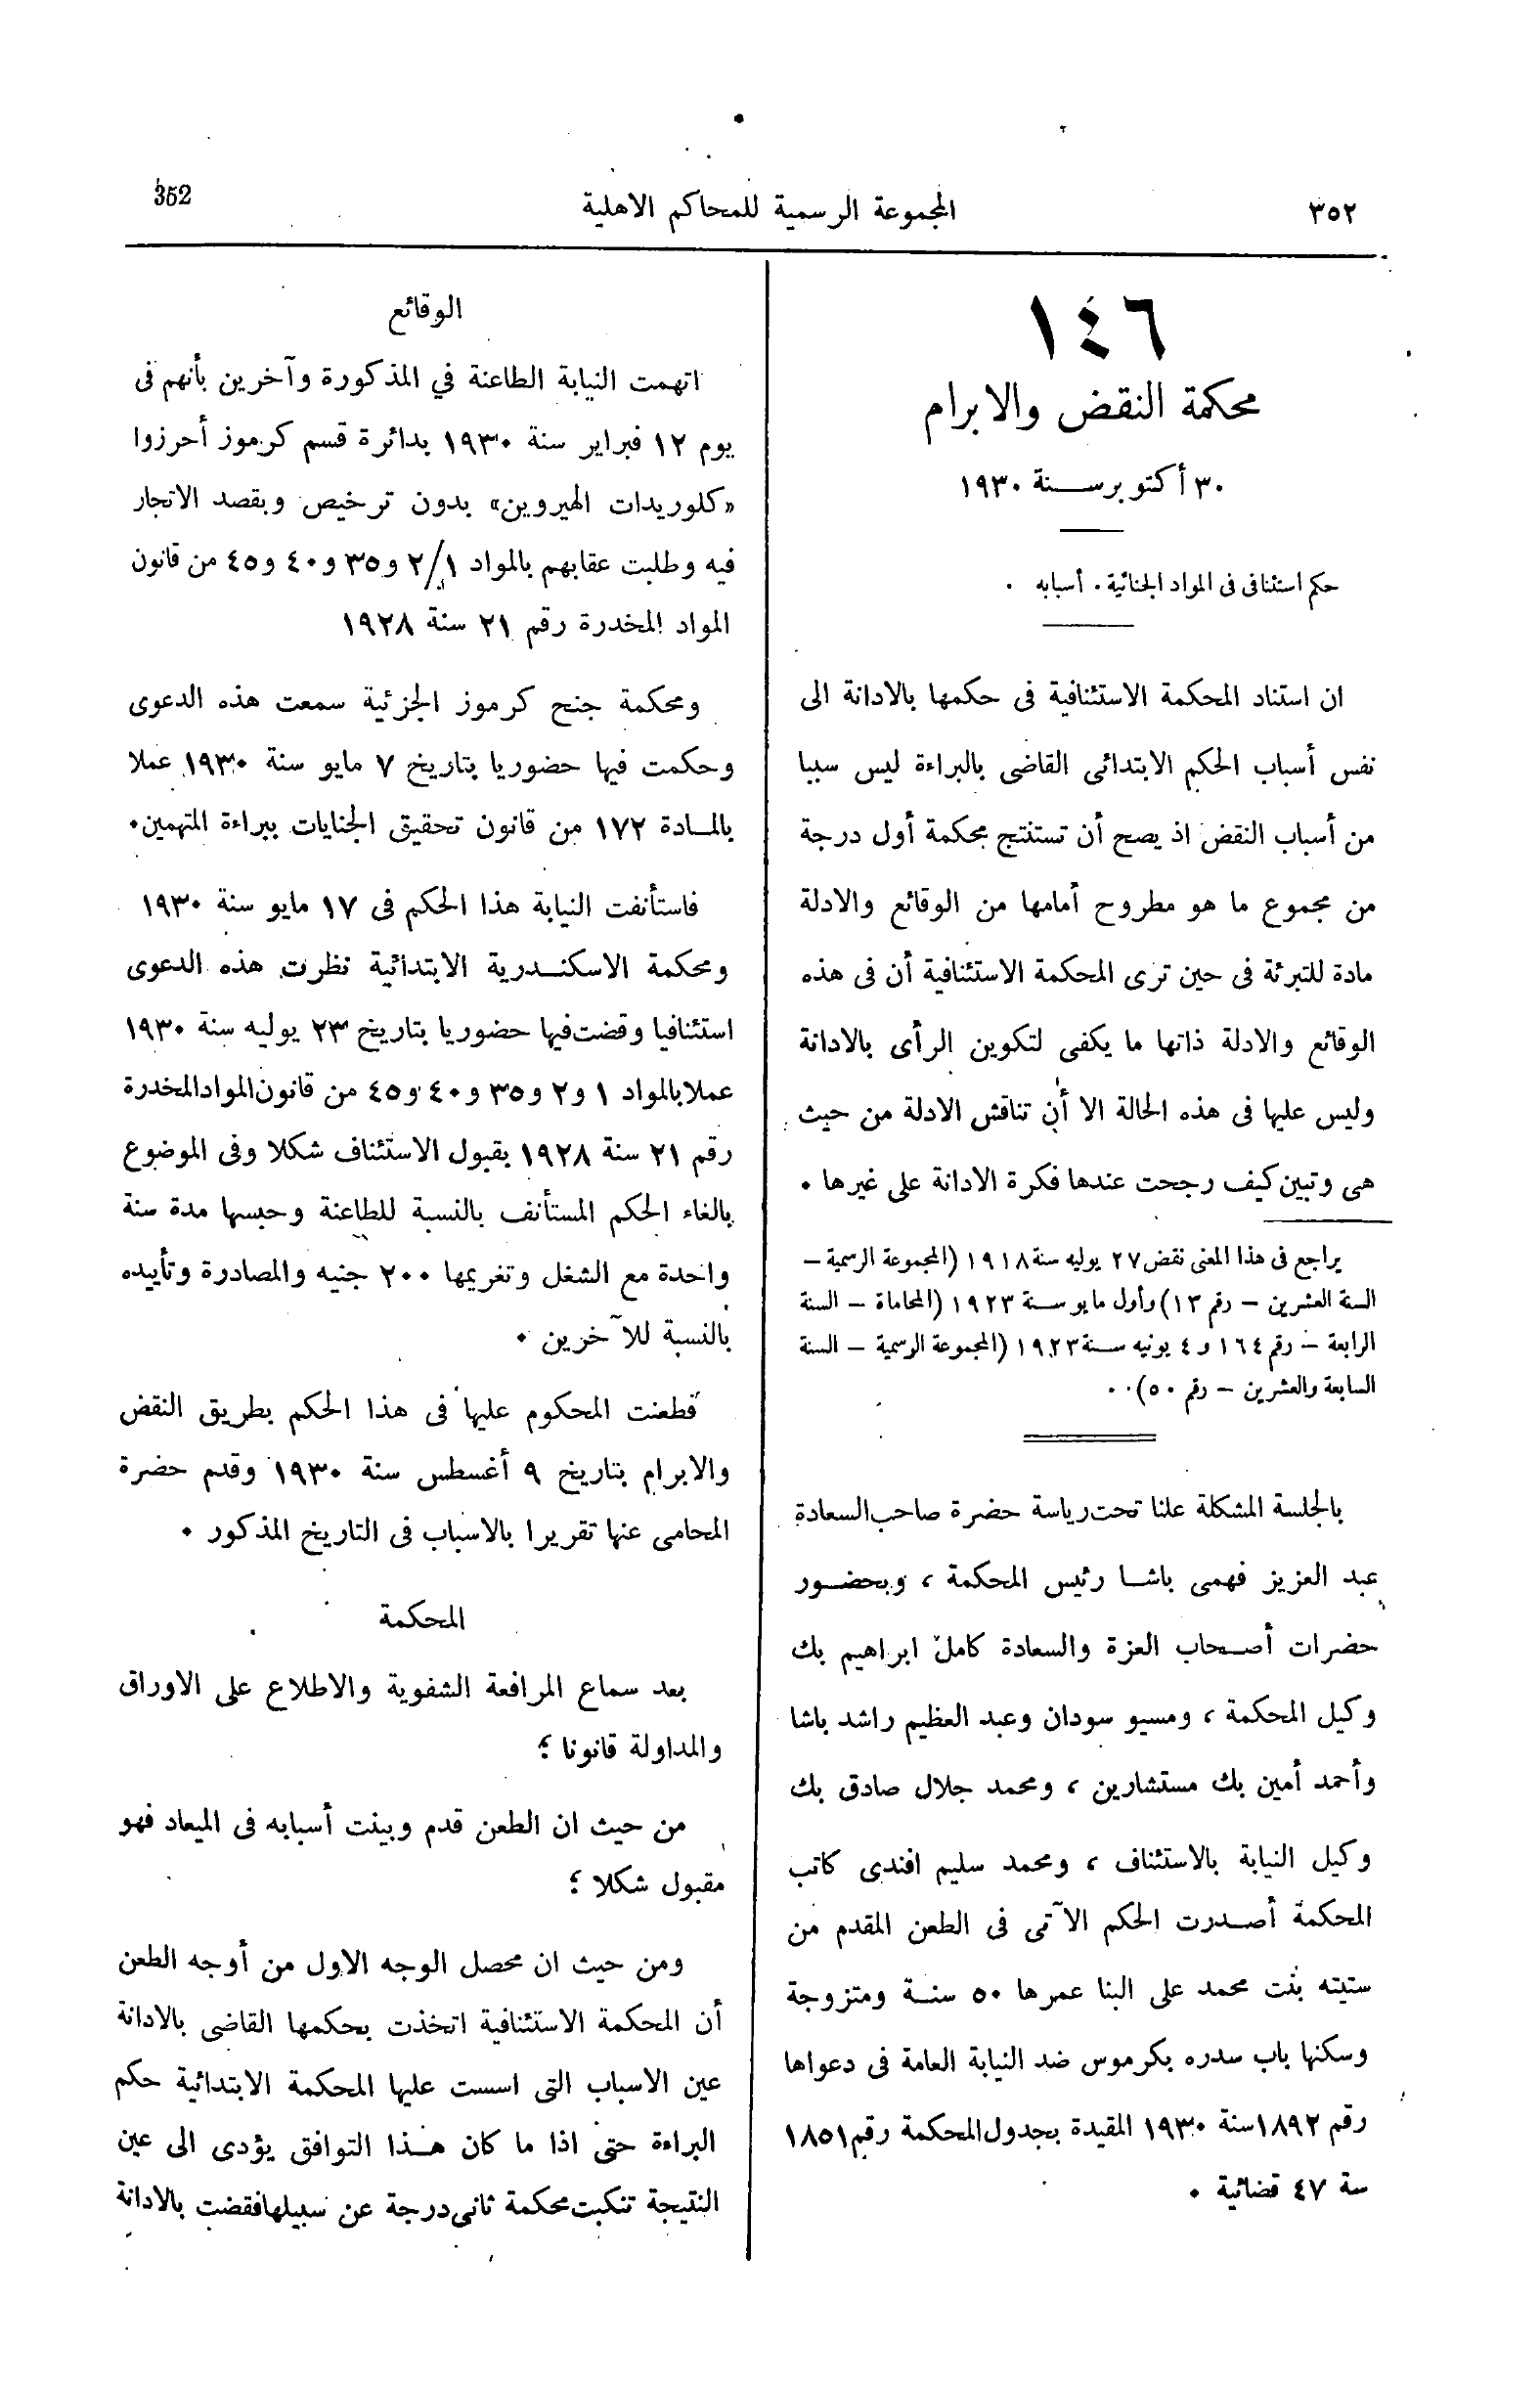 ٣٥٢
المجموعة الرسمية للمحاكم الاهلية
352
١٤٦
محكمة النقض والابرام
٣٠ أكتوبر ســـنة ١٩٣٠
حكم استئنافى فى المواد الجنائية . أسبابه .
ان استناد المحكمة الاستئنافية فى حكمها بالادانة الى
نفس أسباب الحكم الابتدائى القاضى بالبراءة ليس سببا
من أسباب النقض اذ يصح أن تستنتج محكمة أول درجة
من مجموع ما هو مطروح أمامها من الوقائع والادلة
مادة للتبرئة فى حين ترى المحكمة الاستئنافية أن فى هذه
الوقائع والادلة ذاتها ما يكفى لتكوين الرأى بالادانة
وليس عليها فى هذه الحالة الا أن تناقش الادلة من حيث
هى وتبين كيف رجحت عندها فكرة الادانة على غيرها .
يراجع فى هذا المعنى نقض ٢٧ يوليه سنة ١٩١٨ (المجموعة الرسمية –
السنة العشرين – رقم ١٣) وأول مايو ســنة ١٩٢٣ (المحاماة – السنة
الرابعة – رقم ١٦٤ و ٤ يونيه ســنة ١٩٢٣ (المجموعة الرسمية – السنة
السابعة والعشرين – رقم ٥٠) .
بالجلسة المشكلة علنا تحت رياسة حضرة صاحب السعادة
عبد العزيز فهمى باشــا رئيس المحكمة ، وبحضــور
حضرات أصــحاب العزة والسعادة كامل ابراهيم بك
وكيل المحكمة ، ومسيو سودان وعبد العظيم راشد باشا
وأحمد أمين بك مستشارين ، ومحمد جلال صادق بك
وكيل النيابة بالاستئناف ، ومحمد سليم افندى كاتب
المحكمة أصــدرت الحكم الآتى فى الطعن المقدم من
ستيته بنت محمد على البنا عمرها ٥٠ سنــة ومتزوجة
وسكنها باب سدره بكرموس ضد النيابة العامة فى دعواها
رقم ١٨٩٢ سنة ١٩٣٠ المقيدة بجدول المحكمة رقم ١٨٥١
سة ٤٧ قضائية .
الوقائع
اتهمت النيابة الطاعنة في المذكورة وآخرين بأنهم فى
يوم ١٢ فبراير سنة ١٩٣٠ بدائرة قسم كرموز أحرزوا
«كلوريدات الهيروين» بدون ترخيص وبقصد الاتجار
فيه وطلبت عقابهم بالمواد ٢/١ و٣٥ و٤٠ و٤٥ من قانون
المواد المخدرة رقم ٢١ سنة ١٩٢٨
ومحكمة جنح كرموز الجزئية سمعت هذه الدعوى
وحكمت فيها حضوريا بتاريخ ٧ مايو سنة ١٩٣٠ عملا
بالمــادة ١٧٢ من قانون تحقيق الجنايات ببراءة المتهمين .
فاستأنفت النيابة هذا الحكم فى ١٧ مايو سنة ١٩٣٠
ومحكمة الاسكنــدرية الابتدائية نظرت هذه الدعوى
استئنافيا وقضت فيها حضوريا بتاريخ ٢٣ يوليه سنة ١٩٣٠
عملا بالمواد ١ و٢ و٣٥ و٤٠ و٤٥ من قانون المواد المخدرة
رقم ٢١ سنة ١٩٢٨ بقبول الاستئناف شكلا وفى الموضوع
بالغاء الحكم المستأنف بالنسبة للطاعنة وحبسها مدة سنة
واحدة مع الشغل وتغريمها ٢٠٠ جنيه والمصادرة وتأييده
بالنسبة للآخرين .
فطعنت المحكوم عليها فى هذا الحكم بطريق النقض
والابرام بتاريخ ٩ أغسطس سنة ١٩٣٠ وقدم حضرة
المحامى عنها تقريرا بالاسباب فى التاريخ المذكور .
المحكمة
بعد سماع المرافعة الشفوية والاطلاع على الاوراق
والمداولة قانونا ؛
من حيث ان الطعن قدم وبينت أسبابه فى الميعاد فهو
مقبول شكلا ؛
ومن حيث ان محصل الوجه الاول من أوجه الطعن
أن المحكمة الاستئنافية اتخذت بحكمها القاضى بالادانة
عين الاسباب التى اسست عليها المحكمة الابتدائية حكم
البراءة حتى اذا ما كان هــذا التوافق يؤدى الى عين
النتيجة تنكبت محكمة ثانى درجة عن سبيلها فقضت بالادانة